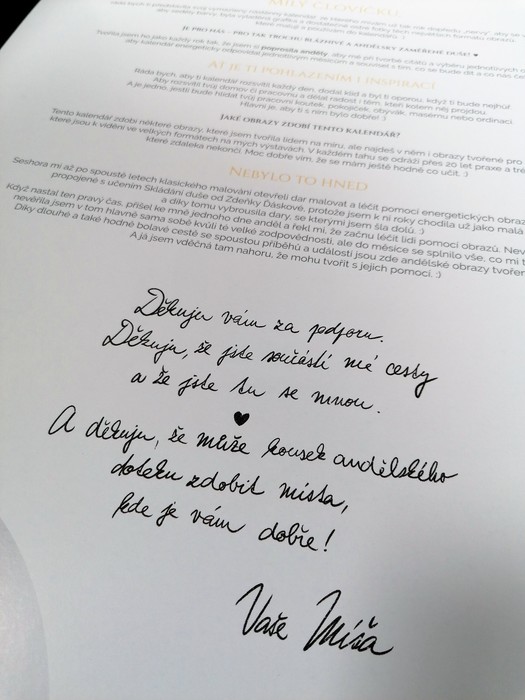 MILÝ ČLOVÍČKU
JE PRO NÁS - PRO TAK TROCHU BLÁZNIVÉ A ANDĚLSKY ZAMĚŘENÉ DUŠE! ♥
Tvořila jsem ho jako každý rok tak, že jsem si poprosila anděly, aby mě při tvorbě citátů a výběru jednotlivých
aby kalendář energeticky odpovídal jednotlivým měsícům a souznel s tím, co se bude dít a co nás
AŤ JE TI POHLAZENÍM I INSPIRACÍ
Ráda bych, aby ti kalendář rozsvítil každý den, dodal klid a byl ti oporou, když ti bude nejhůř.
Aby rozsvítil tvůj domov či pracovnu a dělal radost i těm, kteří kolem něj projdou.
A je jedno, jestli bude hlídat tvůj pracovní koutek, pokojíček, obývák, masérnu nebo ordinaci.
Hlavní je, aby ti s ním bylo dobře! :)
JAKÉ OBRAZY ZDOBÍ TENTO KALENDÁŘ?
Tento kalendář zdobí některé obrazy, které jsem tvořila lidem na míru, ale najdeš v něm i obrazy tvořené pro
které jsou k vidění ve velkých formátech na mých výstavách. V každém tahu se odráží přes 20 let praxe a
která zdaleka nekončí. Moc dobře vím, že se mám ještě hodně co učit. :)
NEBYLO TO HNED
Seshora mi až po spoustě letech klasického malování otevřeli dar malovat a léčit pomocí energetických
propojené s učením Skládání duše od Zdeňky Dáskové, protože jsem k ní roky chodila už jako malá
a díky tomu vybrousila dary, se kterými jsem šla dolů. :)
Když nastal ten pravý čas, přišel ke mně jednoho dne anděl a řekl mi, že začnu léčit lidi pomocí obrazů.
nevěřila jsem v tom hlavně sama sobě kvůli té velké zodpovědnosti, ale do měsíce se splnilo vše, co mi
Díky dlouhé a také hodně bolavé cestě se spoustou příběhů a událostí jsou zde andělské obrazy
A já jsem vděčná tam nahoru, že mohu tvořit s jejich pomocí. :)
Děkuju vám za podporu.
Děkuju, že jste součástí mé cesty
a že jste tu se mnou.
♥
A děkuju, že může kousek andělského
doteku zdobit místa,
kde je vám dobře!
Vaše Míša